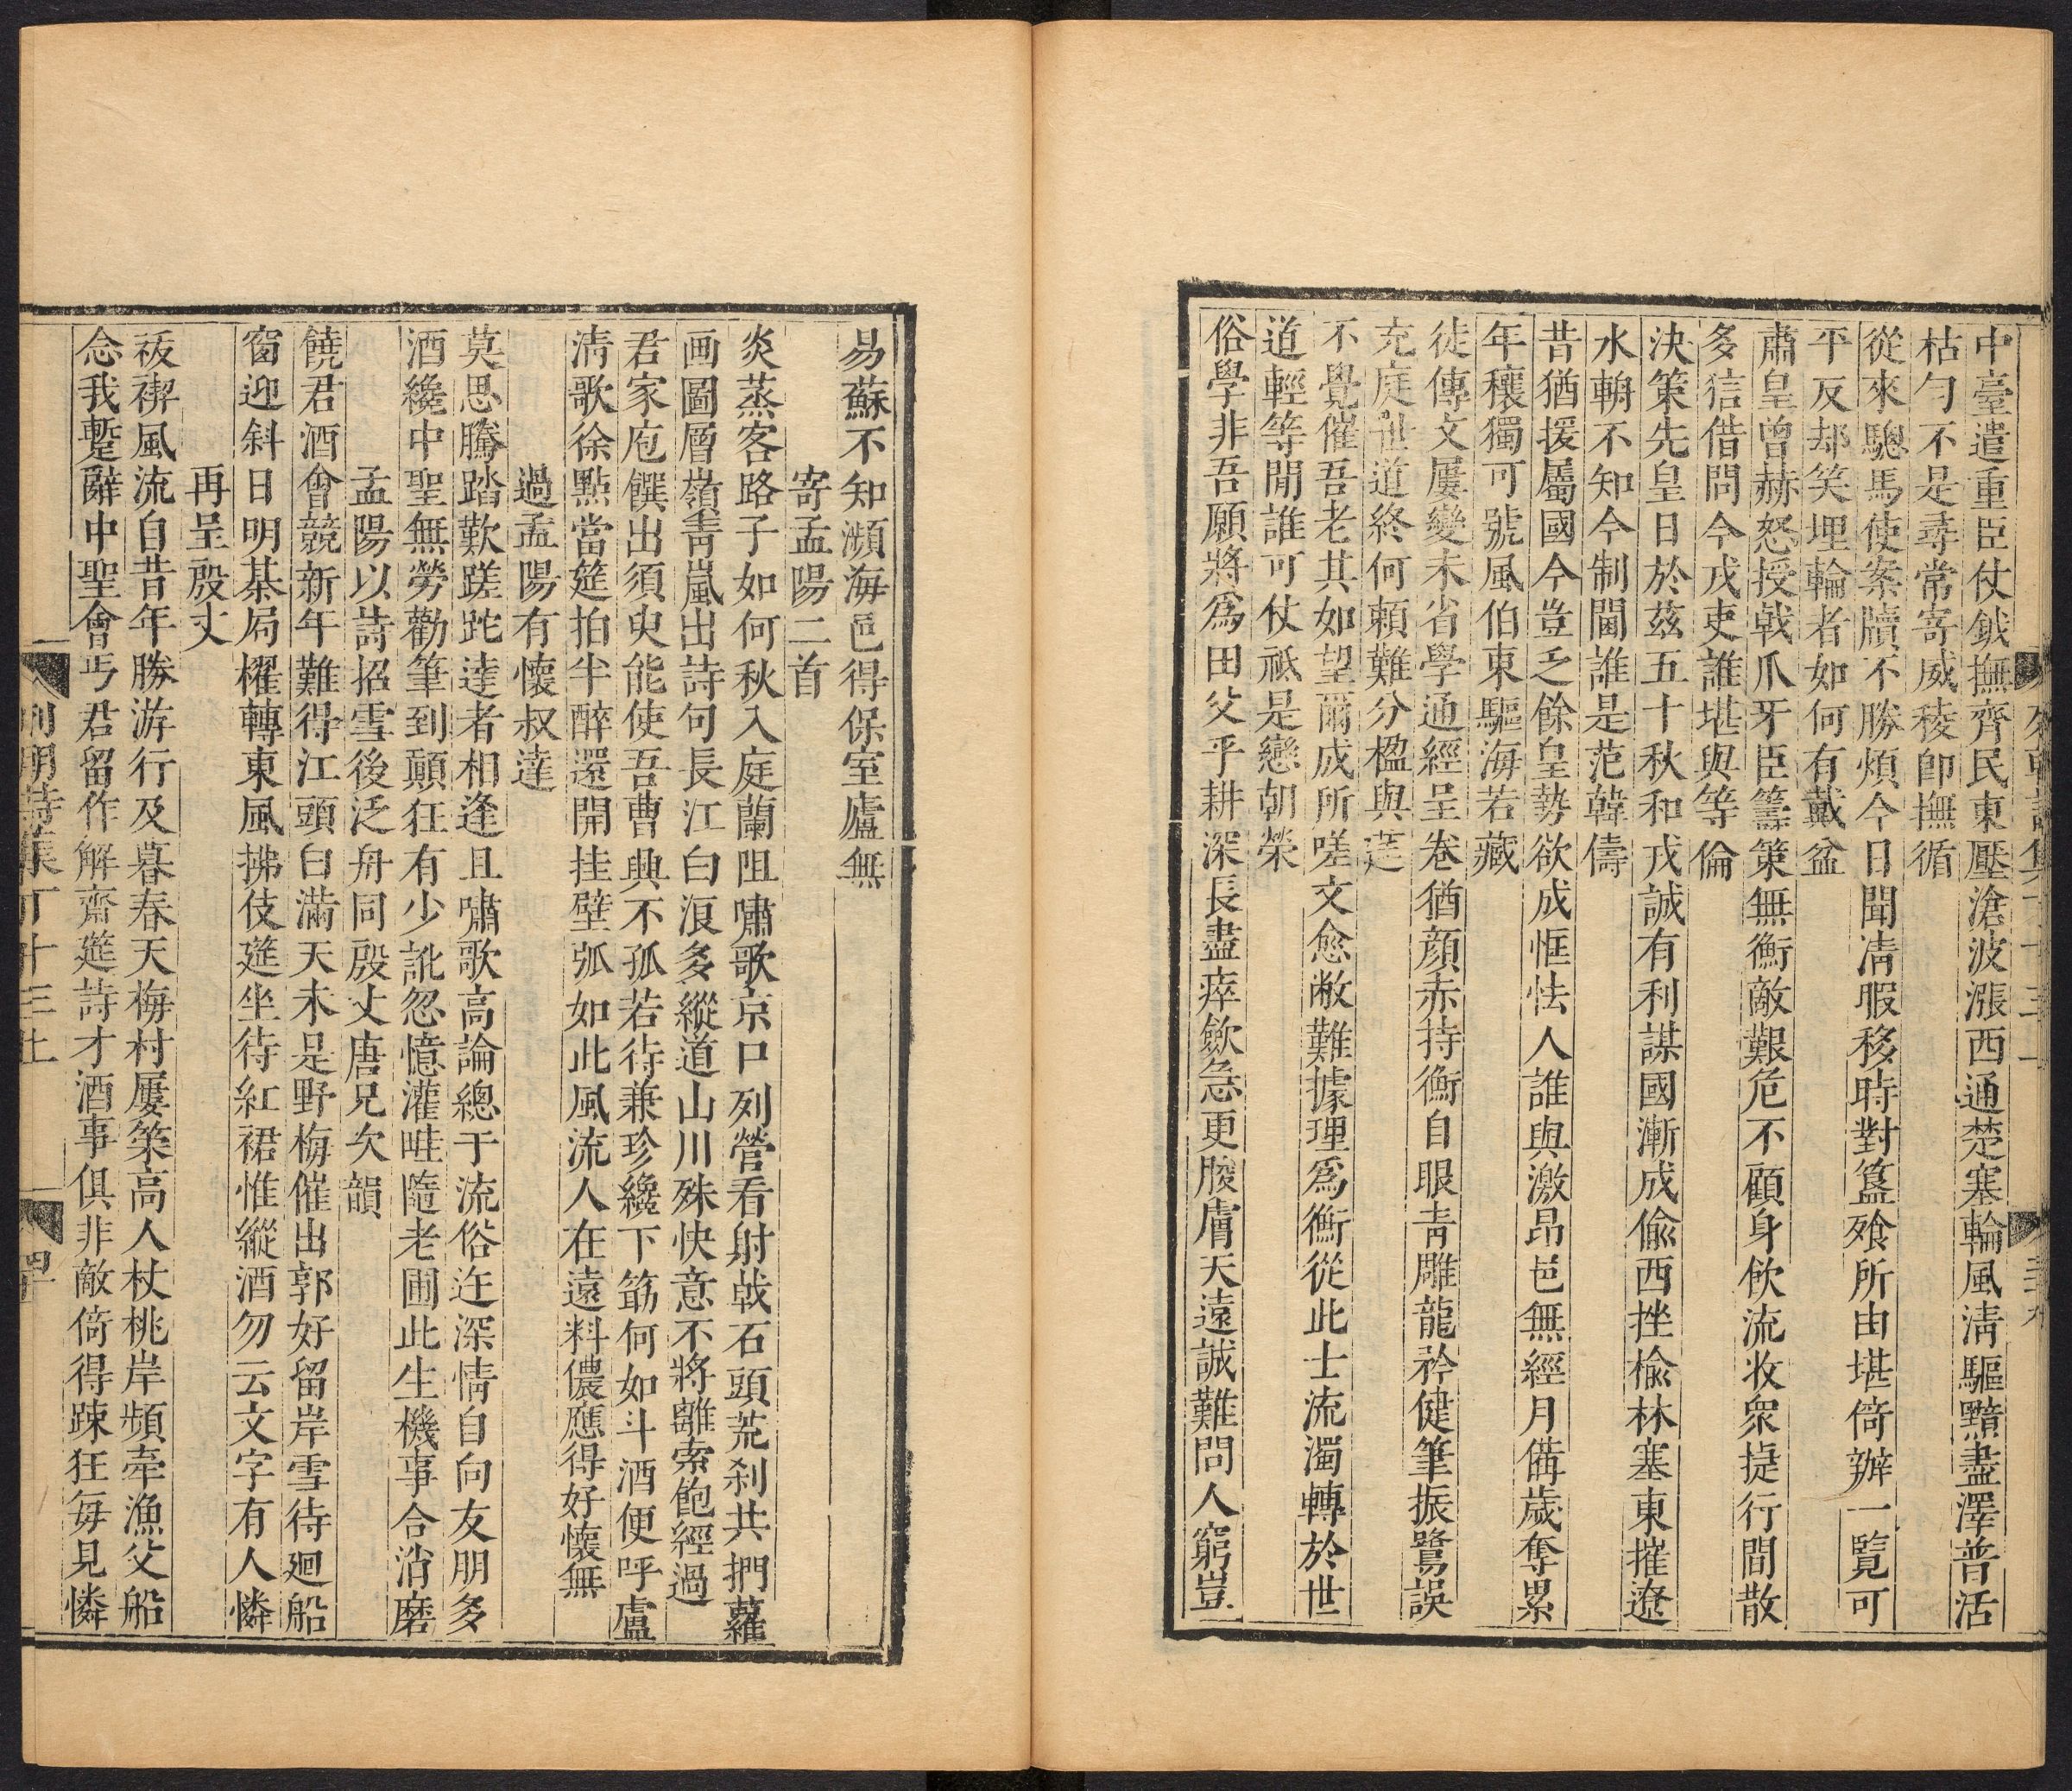 中臺遣重臣仗鉞撫齊民東壓滄波漲西通楚塞輪風淸驅黯盡澤普活
枯勻不是尋常寄威稜卽撫循
從來驄馬使案牘不勝煩今日聞淸暇移時對簋飱所由堪倚辦一覽可
平反却笑埋輪者如何有戴盆
肅皇曾赫怒授戟爪牙臣籌策無衡敵艱危不顧身飮流收衆捷行間散
多信借問今戎吏誰堪與等倫
決策先皇日於茲五十秋和戎誠有利謀國漸成偸西挫楡林塞東摧遼
水輈不知今制閫誰是范韓儔
昔猶援屬國今豈乏餘皇勢欲成恇怯人誰與激昂邑無經月備歲奪累
年穰獨可號風伯東驅海若藏
徒傳文屢變未省學通經呈卷猶顏赤持衡自眼靑雕龍矜健筆振鷺誤
充庭世道終何賴難分楹與莛
不覺催吾老其如望爾成所嗟文愈敝難據理爲衡從此士流濁轉於世
道輕等閒誰可仗祇是戀朝榮
俗學非吾願將爲田父乎耕深長盡瘁歛急更朘膚天遠誠難問人窮豈
易蘇不知瀕海邑得保室廬無
寄孟陽二首
炎蒸客路子如何秋入庭蘭阻嘯歌京口列營看射戟石頭荒刹共捫蘿
画圖層嶺靑嵐出詩句長江白浪多縱道山川殊快意不將離索飽經過
君家庖饌出須臾能使吾曹興不孤若待兼珍纔下筯何如斗酒便呼盧
淸歌徐點當筵拍半醉還開挂壁弧如此風流人在遠料儂應得好懷無
過孟陽有懷叔達
莫思騰踏歎蹉跎達者相逢且嘯歌高論總于流俗迕深情自向友朋多
酒纔中聖無勞勸筆到顚狂有少訛忽憶灌畦隨老圃此生機事合消磨
孟陽以詩招雪後泛舟同殷丈唐兄欠韻
饒君酒會競新年難得江頭白滿天未是野梅催出郭好留岸雪待廻船
窗迎斜日明棊局櫂轉東風拂伎筵坐待紅裙惟縱酒勿云文字有人憐
再呈殷丈
祓禊風流自昔年勝游行及暮春天梅村屢策高人杖桃岸頻牽漁父船
念我蹔辭中聖會丐君留作解齋筵詩才酒事俱非敵倚得踈狂每見憐
列朝詩集丁十三上